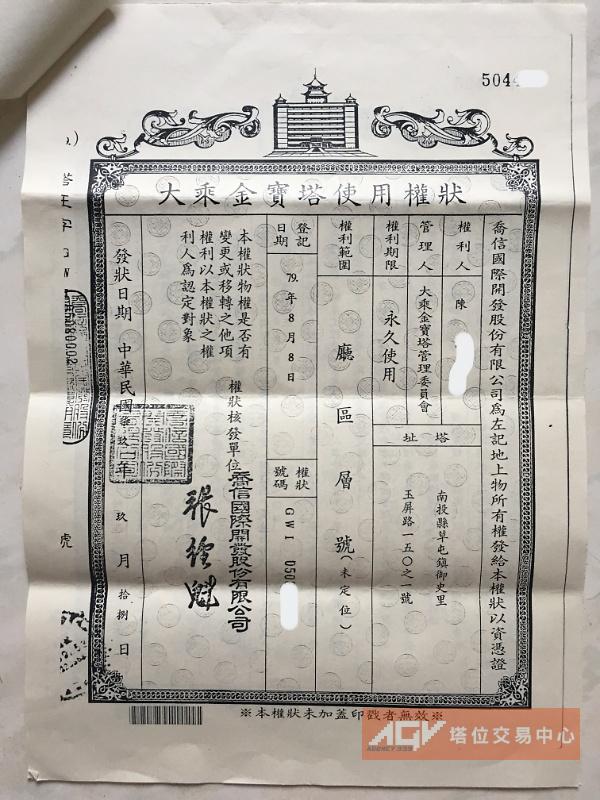 5044
大乘金寶塔使用權狀
喬信國際開發股份有限公司為左記地上物所有權發給本權狀以資憑證
權利人
陳
管理人
大乘金寶塔管理委員會
權利期限
永久使用
塔址
南投縣草屯鎮御史里
玉屏路一五〇之一號
權利範圍
廳區層號(未定位)
登記日期
79.年8月8日
權狀號碼
GWI D500
本權狀物權是否有
變更或移轉之他項
權利以本權狀之權
利人為認定對象
權狀核發單位
喬信國際開發股份有限公司
張經魁
發狀日期 中華民國 玖年 玖月拾捌日
虎
※本權狀未加蓋印戳者無效※
AGV
AGENCY 999
塔位交易中心